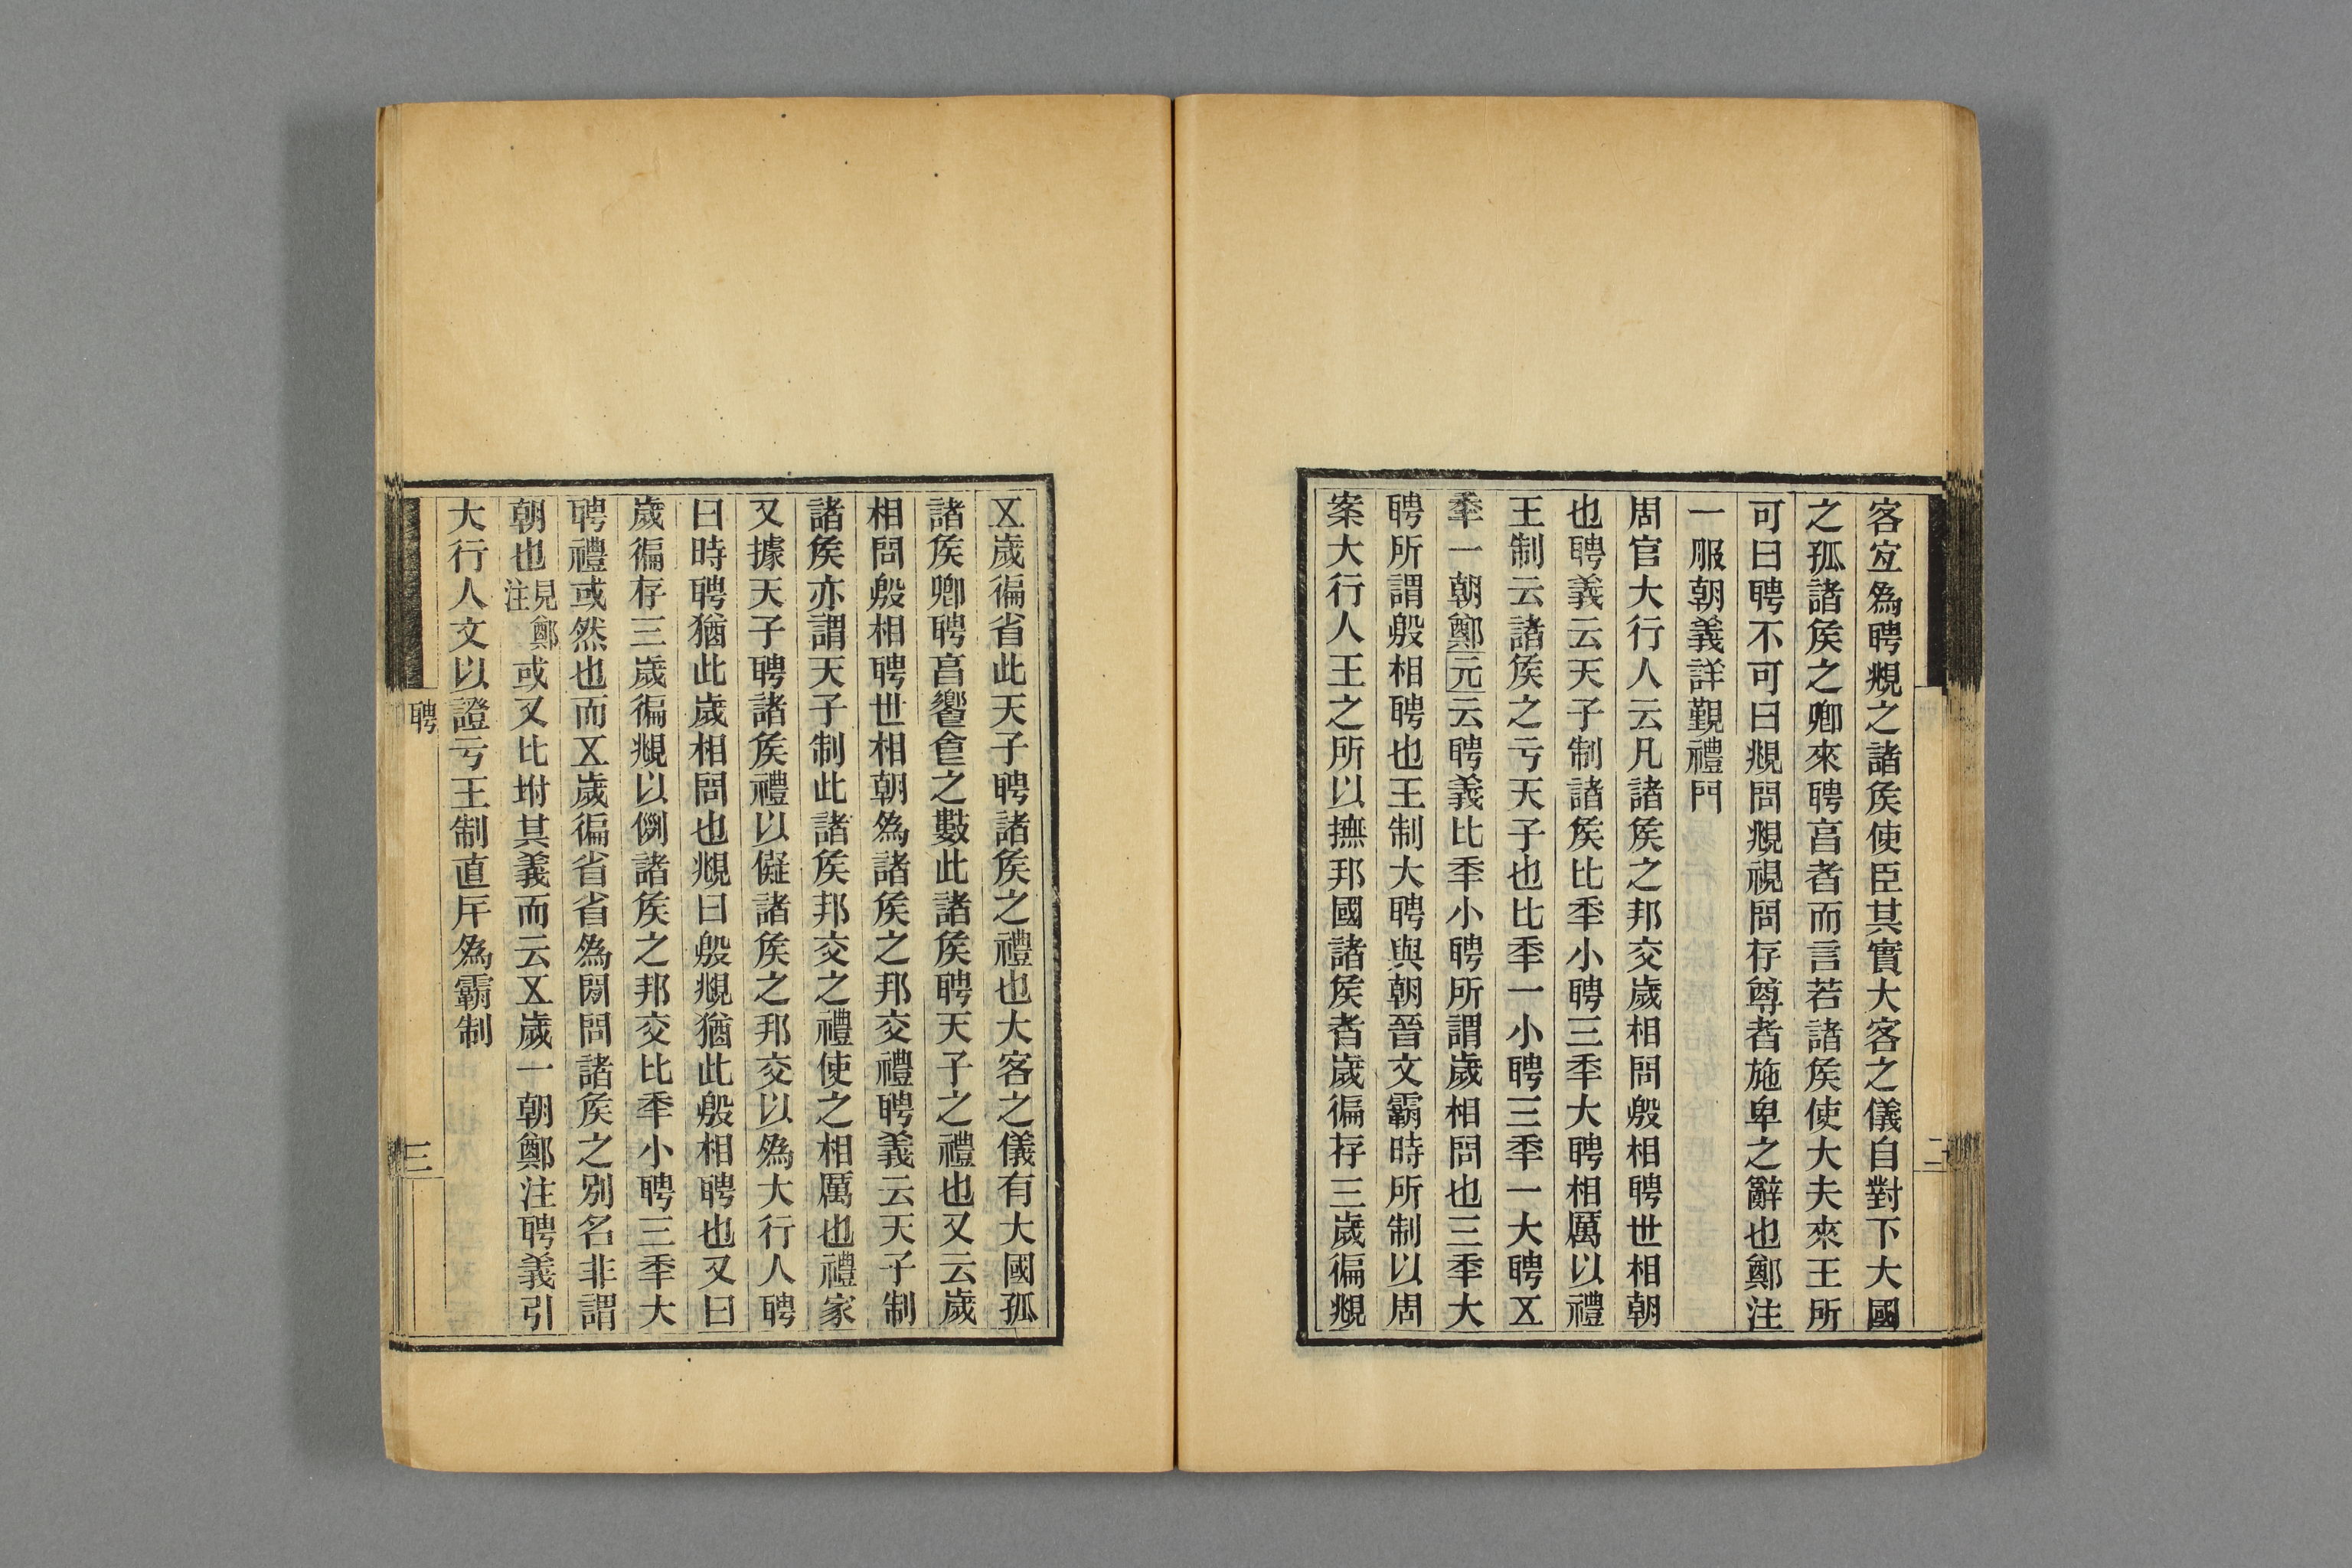 客宐爲聘覜之諸矦使臣其實大客之儀自對下大國
之孤諸矦之卿來聘亯者而言若諸矦使大夫來王所
可曰聘不可曰覜問覜視問存尊者施卑之辭也鄭注
一服朝義詳覲禮門
周官大行人云凡諸矦之邦交歲相問殷相聘世相朝
也聘義云天子制諸矦比秊小聘三秊大聘相厲以禮
王制云諸矦之亏天子也比秊一小聘三秊一大聘㐅
秊一朝鄭元云聘義比秊小聘所謂歲相問也三秊大
聘所謂殷相聘也王制大聘與朝晉文霸時所制以周
案大行人王之所以撫邦國諸矦者歲徧存三歲徧覜
㐅歲徧省此天子聘諸矦之禮也大客之儀有大國孤
諸矦卿聘亯饗㑹之數此諸矦聘天子之禮也又云歲
相問殷相聘世相朝爲諸矦之邦交禮聘義云天子制
諸矦亦謂天子制此諸矦邦交之禮使之相厲也禮家
又據天子聘諸矦禮以儗諸矦之邦交以爲大行人聘
曰時聘猶此歲相問也覜曰殷覜猶此殷相聘也又曰
歲徧存三歲徧覜以例諸矦之邦交比秊小聘三秊大
聘禮或然也而㐅歲徧省省爲閒問諸矦之別名非謂
朝也見鄭注或又比坿其義而云㐅歲一朝鄭注聘義引
大行人文以證亏王制直厈爲霸制
聘
二
三